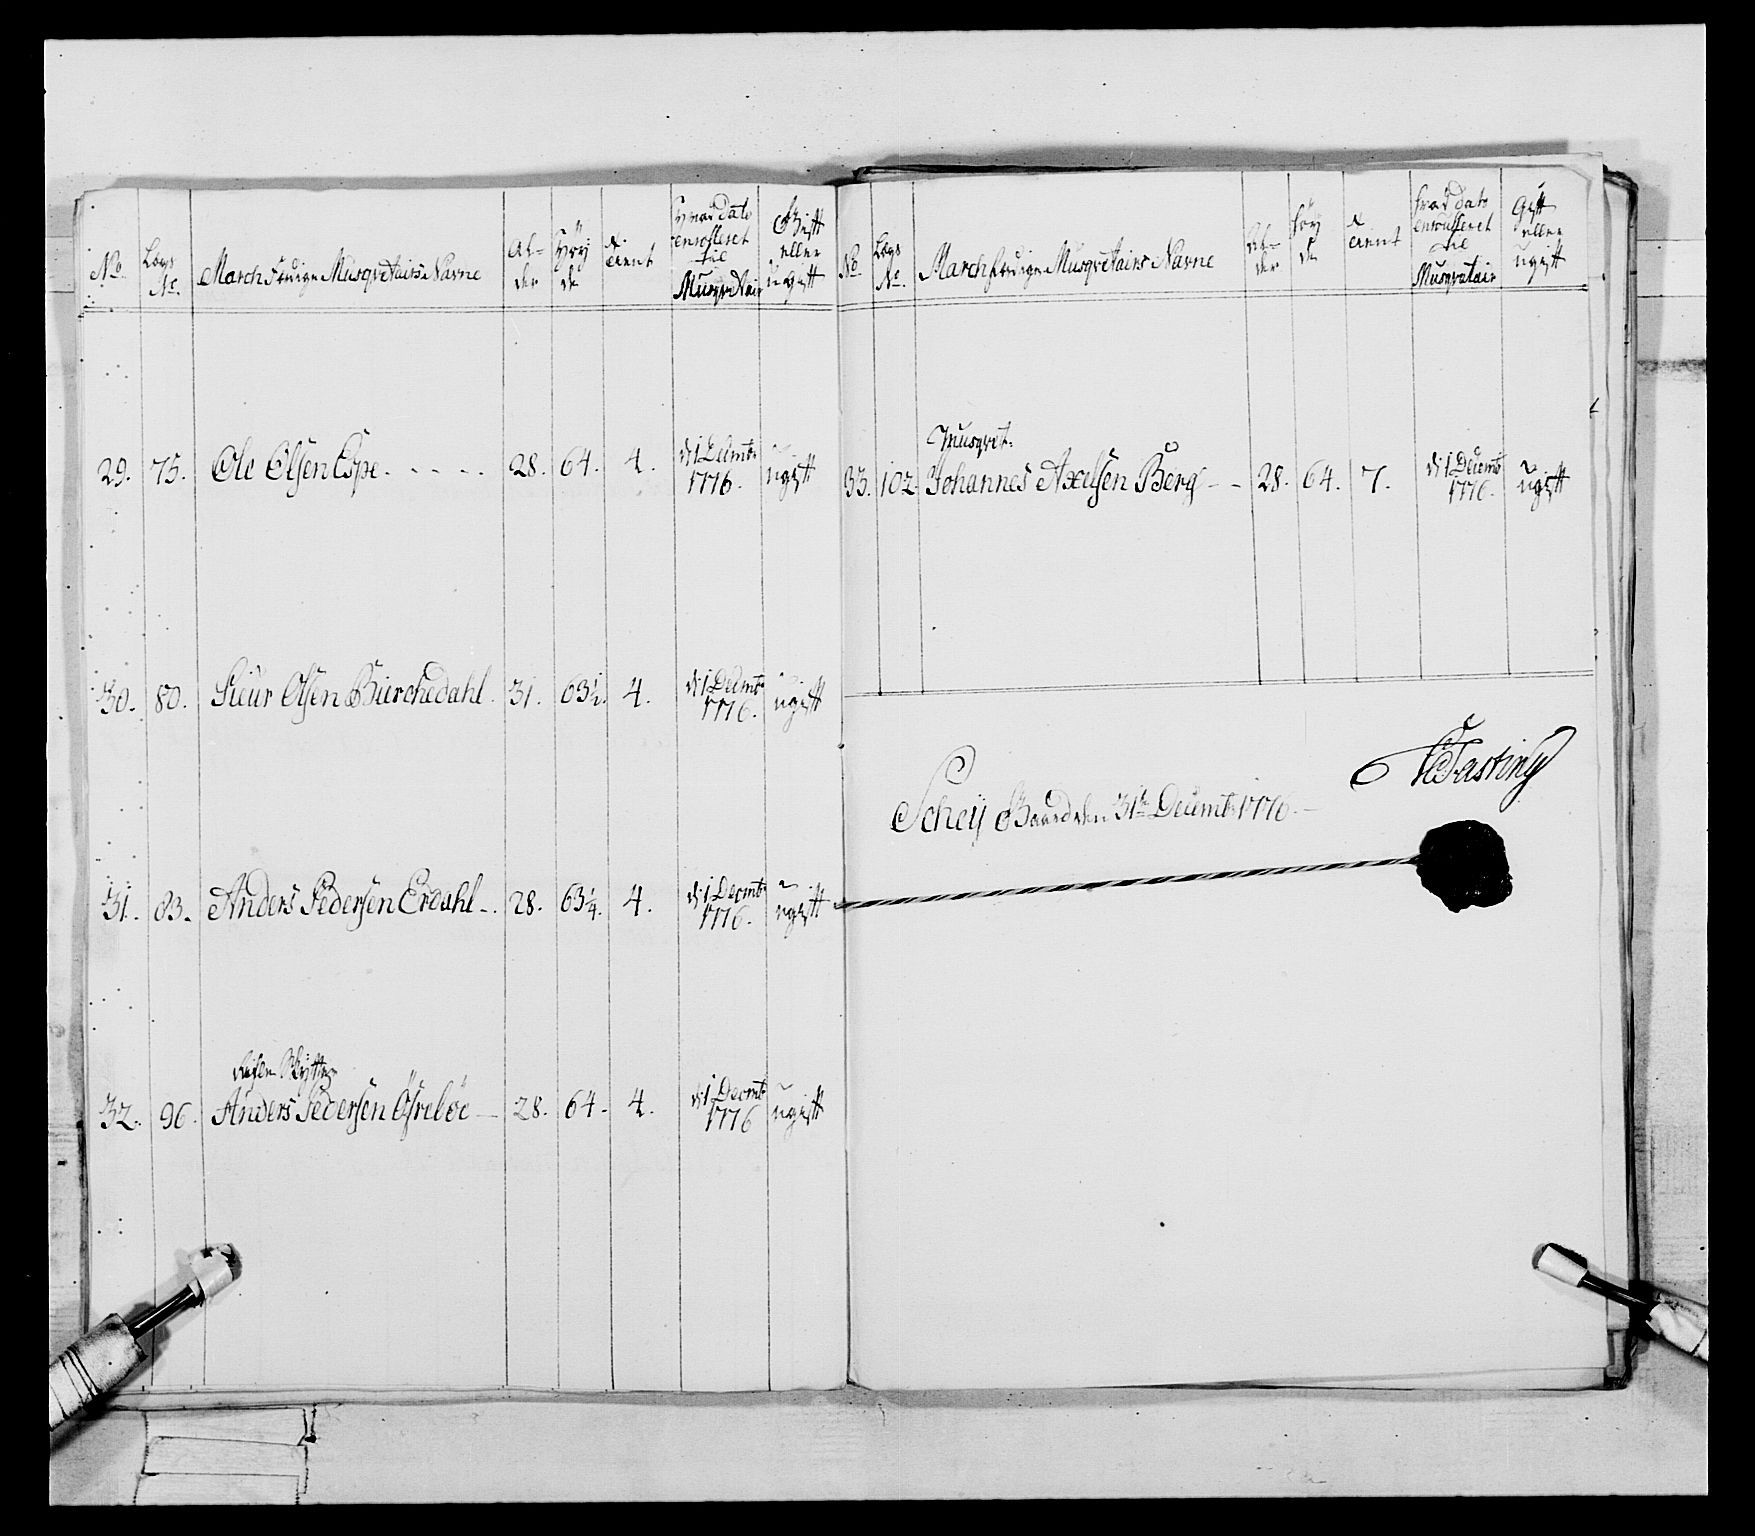 No. Lægs No. Marchfærdige Musqvetairs Navne Al-der Høyde Tient hvad dato enrolleret til Musqvetair Gift eller ugift
29. 75. Ole Olsen Espe. 28. 64. 4. d: 1 Decmb: 1776. ugift
30. 80. Siur Olsen Bierchedahl. 31. 63½. 4. d: 1 Decmb: 1776. ugift
31. 83. Anders Pedersen Erdahl 28. 63¼. 4. d: 1 Decmb: 1776. ugift
32. 96. Anders Pedersen Øfrebøe 28. 64. 4. d: 1 Decmb: 1776 ugift
No. Lægs No. Marchfærdige Musqvetairs Navne Al-der høyde tient hvad dato enrolleret til Musqvetair Gift eller ugift
Musqvet:
33. 102. Johannes Axelsen Berg 28. 64. 7. d: 1 Decemb: 1776. ugift
Fasting
Scheij Gaard den 31te Decemb: 1776.